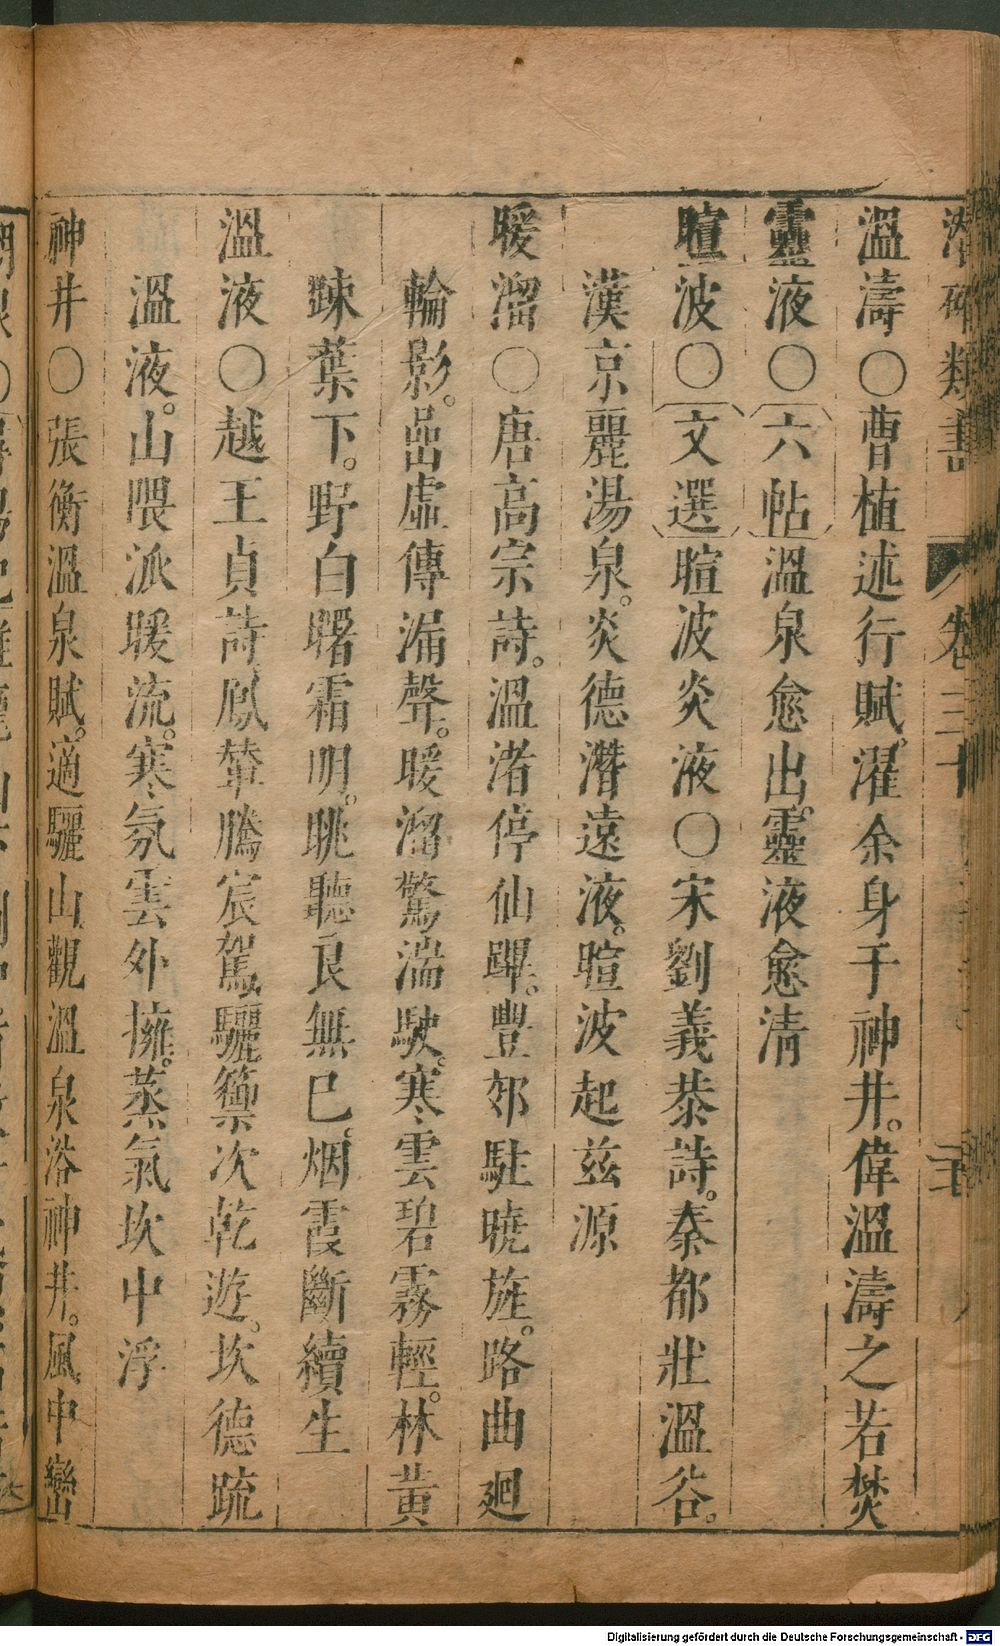 潛確類書 卷三十
溫濤〇曹植述行賦。濯余身于神井。偉溫濤之若焚
靈液〇〔六帖〕溫泉愈出。靈液愈清
暄波〇〔文選〕暄波炎液〇宋劉義恭詩。秦都壯溫谷。
漢京麗湯泉。炎德潛遠液。暄波起兹源
暖溜〇唐高宗詩。溫渚停仙蹕。豐郊駐曉旌。路曲廻
輪影。嵒虛傳漏聲。暖溜驚湍駛。寒雲碧霧輕。林黄
踈葉下。野白曙霜明。眺聽良無已。烟霞斷續生
溫液〇越王貞詩。鳳輦騰宸駕。驪籞次乾遊。坎德疏
溫液。山隈派暖流。寒氛雲外擁。蒸氣坎中浮
神井〇張衡溫泉賦。適驪山觀溫泉浴神井。風中巒
Digitalisierung gefördert durch die Deutsche Forschungsgemeinschaft - DFG